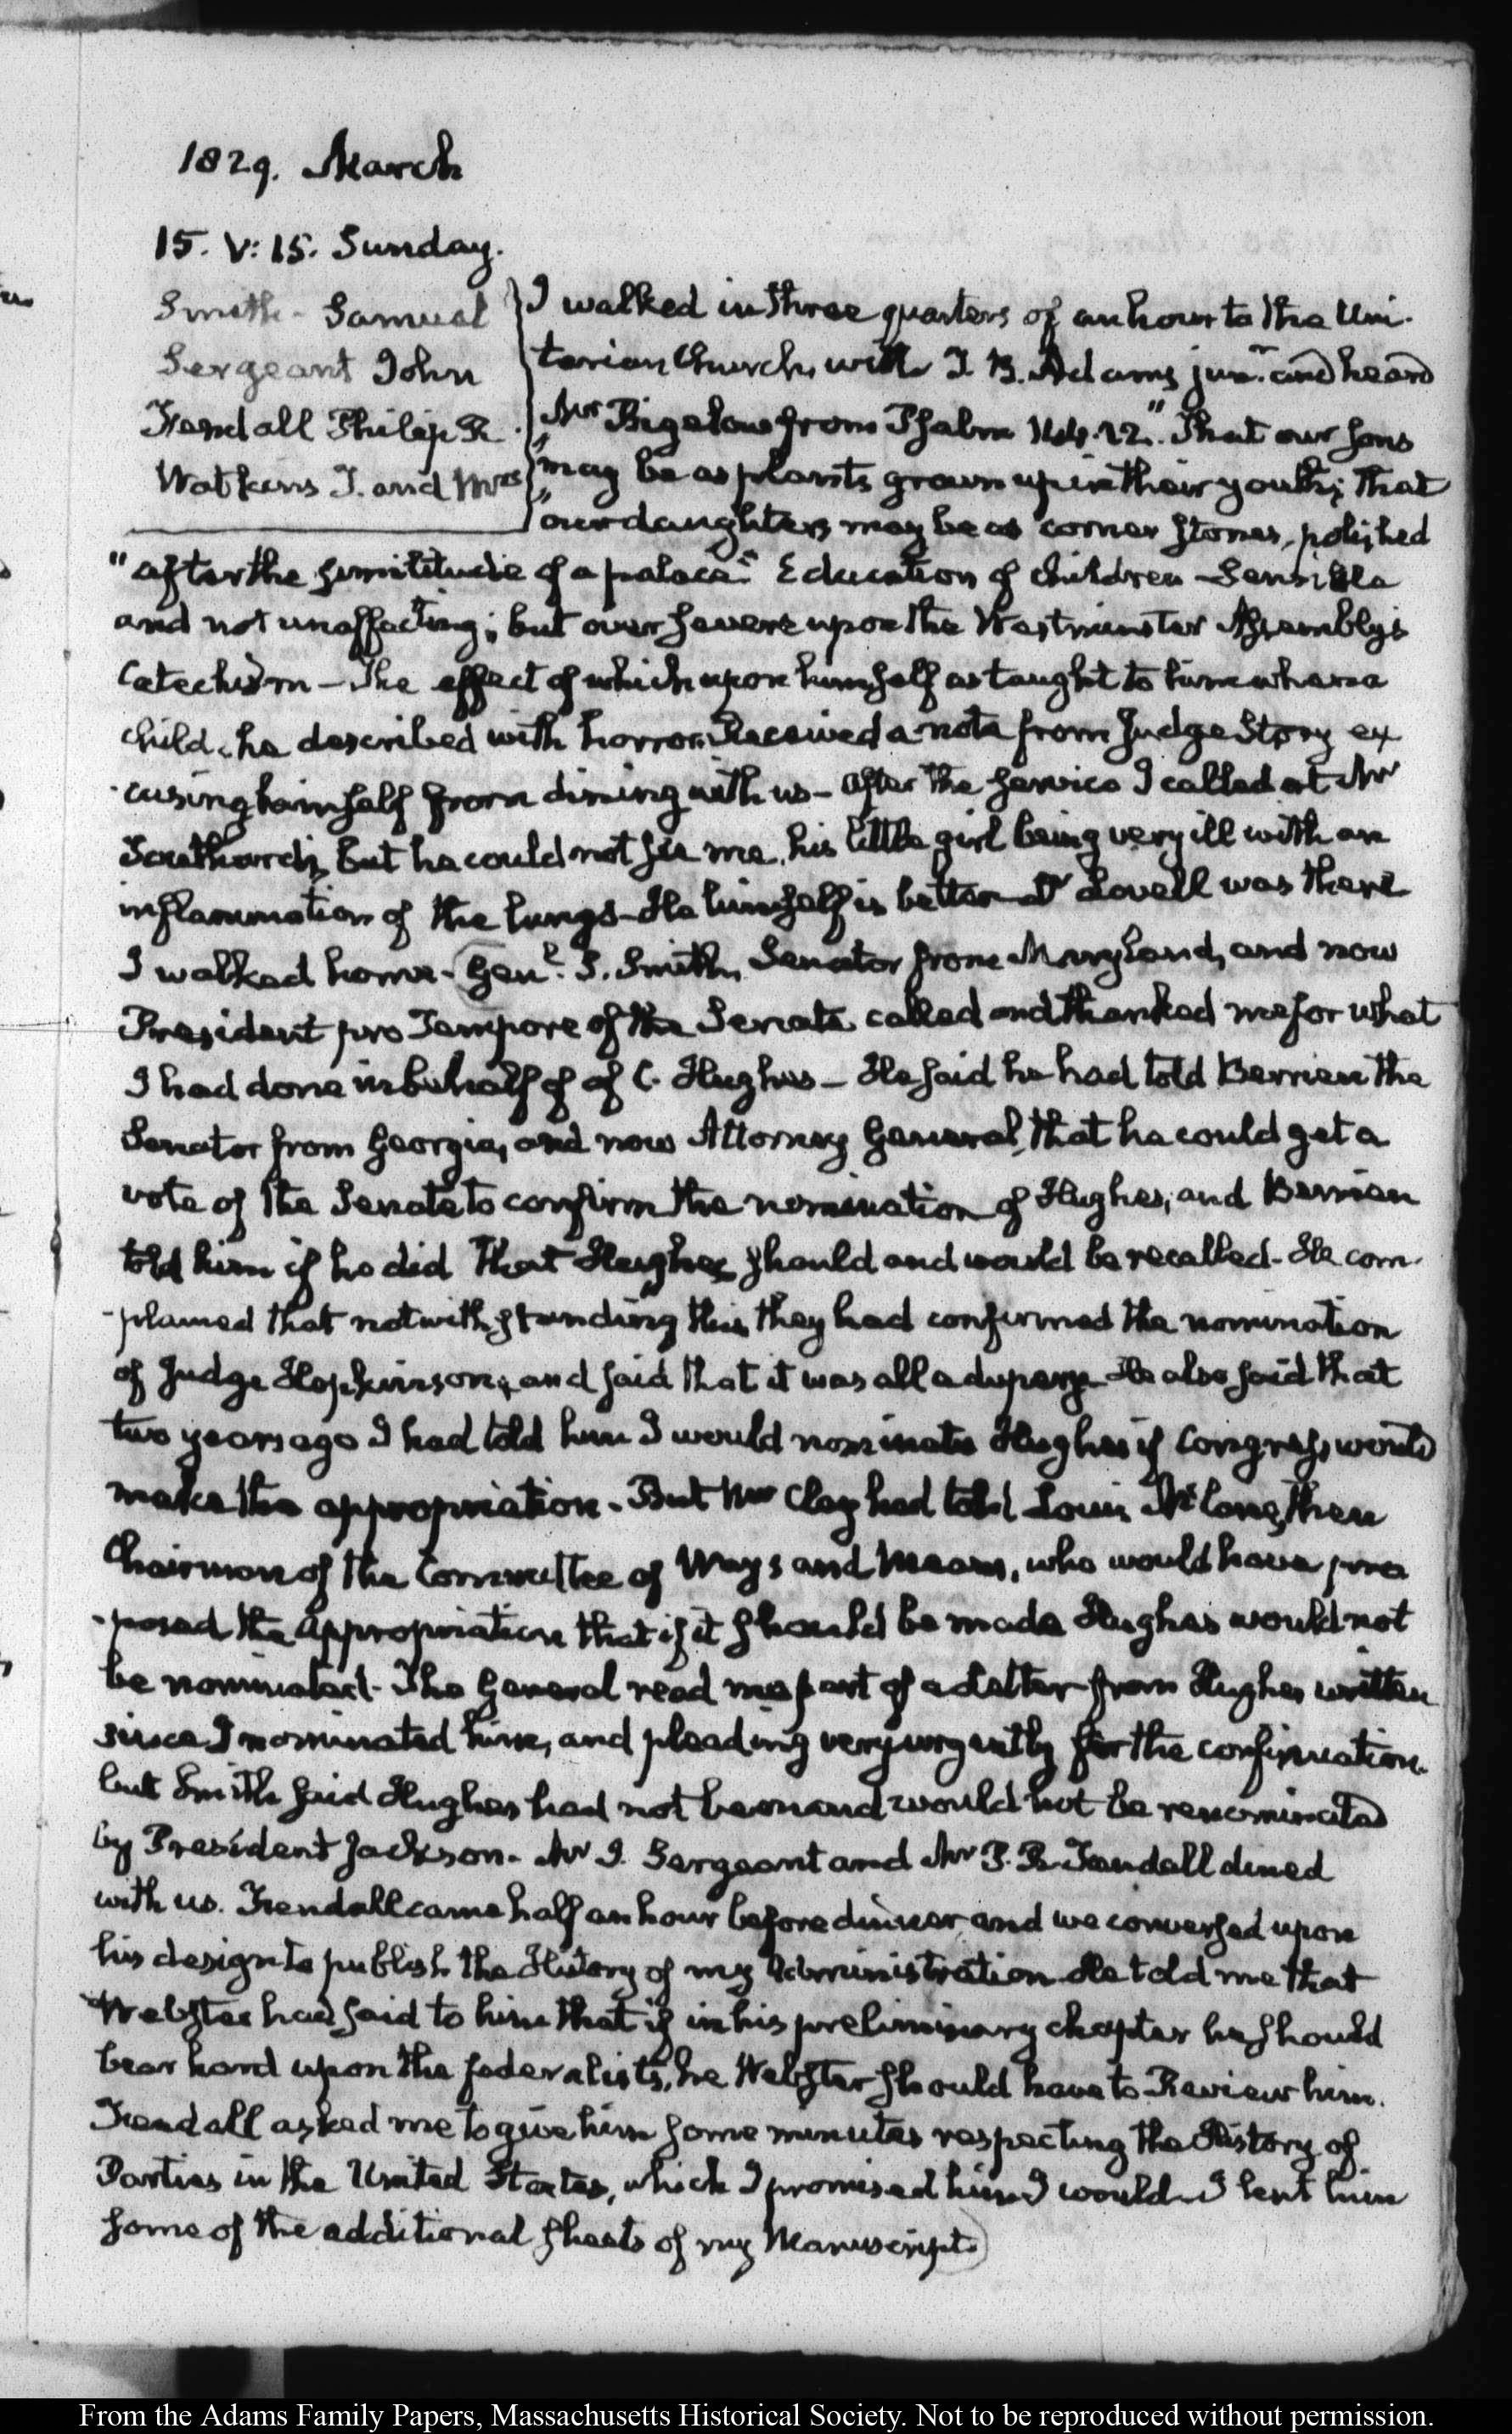 1829. March
15. V: 15. Sunday.
Smith - Samuel
Sergeant John
Fendall Philip R.
Watkins T. and Mrs
I walked in three quarters of an hour to the Uni-
tarian Church, with T. B. Adams junr. and heard
Mr Bigelow from Psalm 144. 12. "That our sons
"may be as plants grown up in their youth; that
"our daughters may be as corner stones, polished
"after the similitude of a palace." Education of children - Sensible
and not unaffecting; but over severe upon the Westminster Assembly's
Catechism - The effect of which upon himself as taught to him when a
child, he described with horror. Received a note from Judge Story ex
-cusing himself from dining with us - After the service I called at Mr
Southard's, but he could not see me, his little girl being very ill with an
inflammation of the lungs - He himself is better - Dr Lovell was there
I walked home - Genl. S. Smith, Senator from Maryland, and now
President pro Tempore of the Senate called and thanked me for what
I had done in behalf of of C. Hughes - He said he had told Berrien the
Senator from Georgia, and now Attorney General, that he could get a
vote of the Senate to confirm the nomination of Hughes; and Berrien
told him if he did that Hughes should and would be recalled - He com
-plained that notwithstanding this, they had confirmed the nomination
of Judge Hopkinson; and said that it was all a dupery - He also said that
two years ago I had told him I would nominate Hughes if Congress would
make the appropriation - But Mr Clay had told Louis McLane, then
Chairman of the Committee of Ways and Means, who would have pro
-posed the appropriation that if it should be made Hughes would not
be nominated - The General read me part of a Letter from Hughes written
since I nominated him, and pleading very urgently for the confirmation.
but Smith said Hughes had not been and would not be renominated
by President Jackson - Mr J. Sergeant and Mr P. R. Fendall dined
with us. Fendall came half an hour before dinner, and we conversed upon
his design to publish the History of my Administration - He told me that
Webster had said to him that if in his preliminary chapter he should
bear hard upon the federalists, he Webster should have to Review him.
Fendall asked me to give him some minutes respecting the History of
Parties in the United States, which I promised him I would - I lent him
some of the additional sheets of my Manuscript.
From the Adams Family Papers, Massachusetts Historical Society. Not to be reproduced without permission.